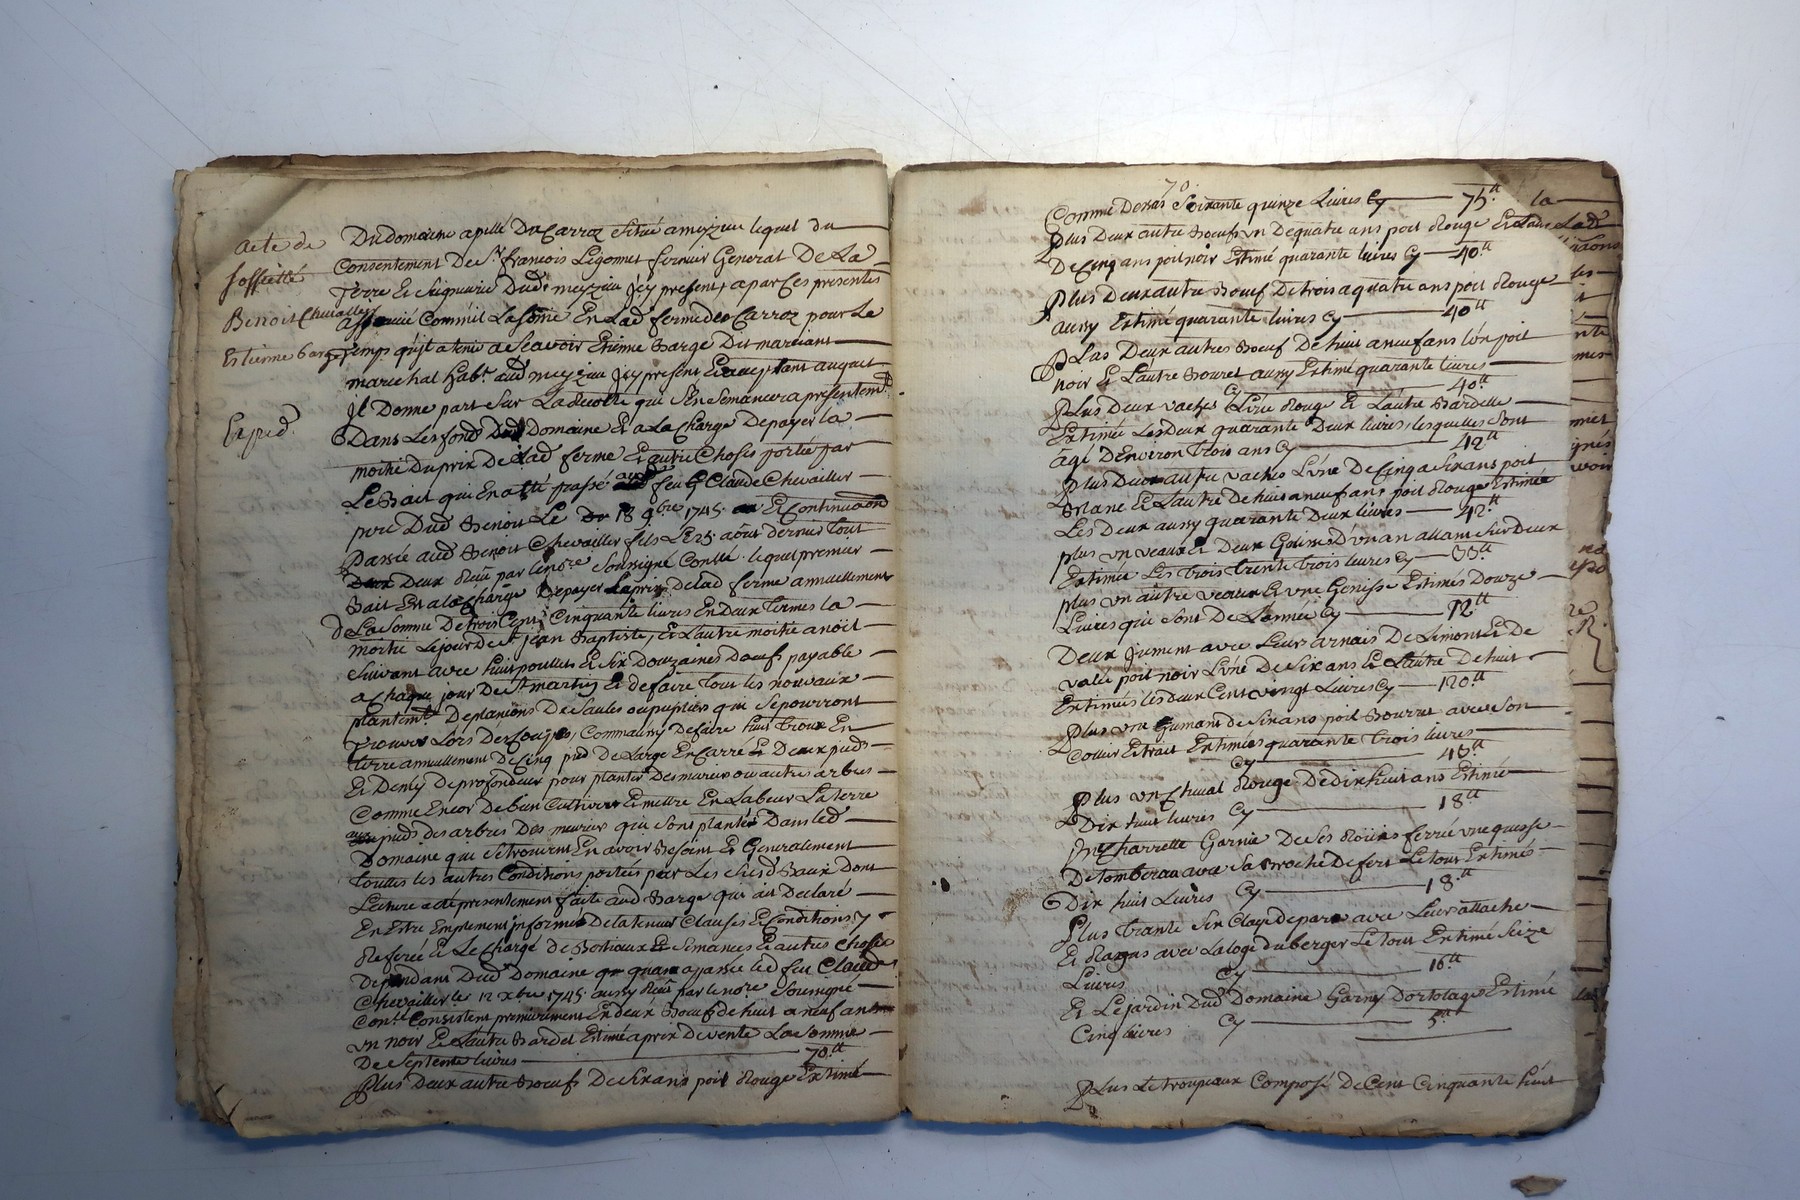 acte de
societté
Benoit Chevallier
Estienne barge
Exped.
Du domaine apellé Du Carroz Situé a meyzieu lequel du
Consentement De Sr. francois Legonnet fermier General De La
Terre Et Seigneurie Dud. meyzieu Jcy present, a par Ces presentes
associé Commit La Somme En Lad. ferme de Carroz pour Le
Temps quil a tenir a Scavoir Etienne Barge Dit
marechal habt. aud. meyzieu Jcy present Et acceptant auquel
Jl Donne part Sur La Recolte qui S'En Semancera presentemt.
Dans Les fond Dud. Domaine Et a La Charge De payer la
moitié Du prix De Lad. ferme Et autre Choses portée par
Le Bail qui En a été passé aud. feu Claude Chevallier
pere Dud. Benoit Le 18 9bre 1745. Et Continuation
Passée aud. Benoit Chevallier fils Le 25 aout dernier Tout
Deux Receu par le nore Soussigné Conlle. lequel premier
Bail En a la Charge De payer Le prix De lad. ferme annuellement
De La Somme De trois Cent Cinquante livres En Deux Termes la
moitié Le jour de St. jean Baptiste, Et L'autre moitié a noel
Suivant avec huit poullets Et Six Douzaines D'oeufs payable
a Chaque jour De St. martin Et de faire Tout les nouvaux
plantemts. De plancons De Saules ou pupliers qui Se pourront
trouver Lors Des Coupes, Comm'aussy De faire huit Troux En
terre annuellement De Cinq pied De Large En Carré Et Deux pieds
Et Demy De profondeur pour planter Des muriers ou autres arbres
Comme Encor De bien Cultiver Et mettre En Labeur La Terre
aux pieds des arbres Des meuriers qui Sont plantés Dans led.
Domaine qui Se trouvent En avoir Besoint Et Generalement
Touttes les autres Conditions portées par Les Susd. Baux Dont
Lecture a été presentement faite aud. Barge qui a dit Declaré
En Estre Emplement jnformé De la teneur Clauses Et Conditions y
Referée Et Le Chargé De Bestiaux Et Semances Et autres Choses
Dependant Dud. Domaine qu'en a passée led. feu Claude
Chevallier le 12 Xbre 1745 aussy Receu par le nore Soussigné
Conlle. Consistent premierement En Deux Boeufs De huit a neuf ans
un noir Et L'autre Bardel Estimé a prix De vente La Somme
De Septente livres 70.tt
Plus Deux autre Boeufs De Six ans poil Rouge Estimé
70.
Comme Dessus Soixante quinze Livres Cy 75.tt
Plus Deux autre Boeufs un De quatre ans poil Rouge Et L'autre
De Cinq ans poil noir Estimé quarante livres Cy 40.tt
Plus Deux autre Boeuf De trois a quatre ans poil Rouge
aussy Estimé quarante livres Cy 40tt
Plus Deux autres Boeuf De huit a neuf ans l'un poil
noir Et L'autre Bouret aussy Estimé quarante livres
Cy 40.tt
Plus Deux vaches L'une Rouge Et L'autre Bardelle
Estimée Les Deux quarante Deux livres, lesquelles Sont
agé D'Environ trois ans Cy 42tt
Plus Deux autre vaches L'une De Cinq a Six ans poil
Blanc Et L'autre De huit a neuf ans poil Rouge Estimée
Les Deux aussy quarante Deux livres 42.tt
plus un veaux Et Deux Genisses D'un an allant Sur Deux
Estimée Les Trois Trente Trois livres Cy 33.tt
plus un autre veaux Et une Genisse Estimés Douze
Livres qui Sont De L'année Cy 12tt
Deux Jument avec Leurs arnais De Limont Et De
valée poil noir L'une De Six ans Et L'autre De huit
Estimées les deux Cent vingt Livres Cy 120.tt
Plus une Jumant de Six ans poil Bourret avec Son
Collier Et trait Estimées quarante Trois livres
Cy 43.tt
Plus un Cheval Rouge De Dix huit ans Estimé
Dix huit livres Cy 18tt
Une Charrette Garnie De Ses Roües ferré une quaisse
De tombereau avec Sa Broche De fert Le tout Estimés
Dix huit Livres Cy 18.tt
Plus Trante Six Claye de parc avec Leur attache
Et Rayons avec La loge du berger Le tout Estimé Seize
Livres Cy 16.tt
Et Le jardin Dud. Domaine Garny D'ortolage Estimé
Cinq livres Cy 5.tt
Plus Le troupeaux Composé De Cent Cinquante huit